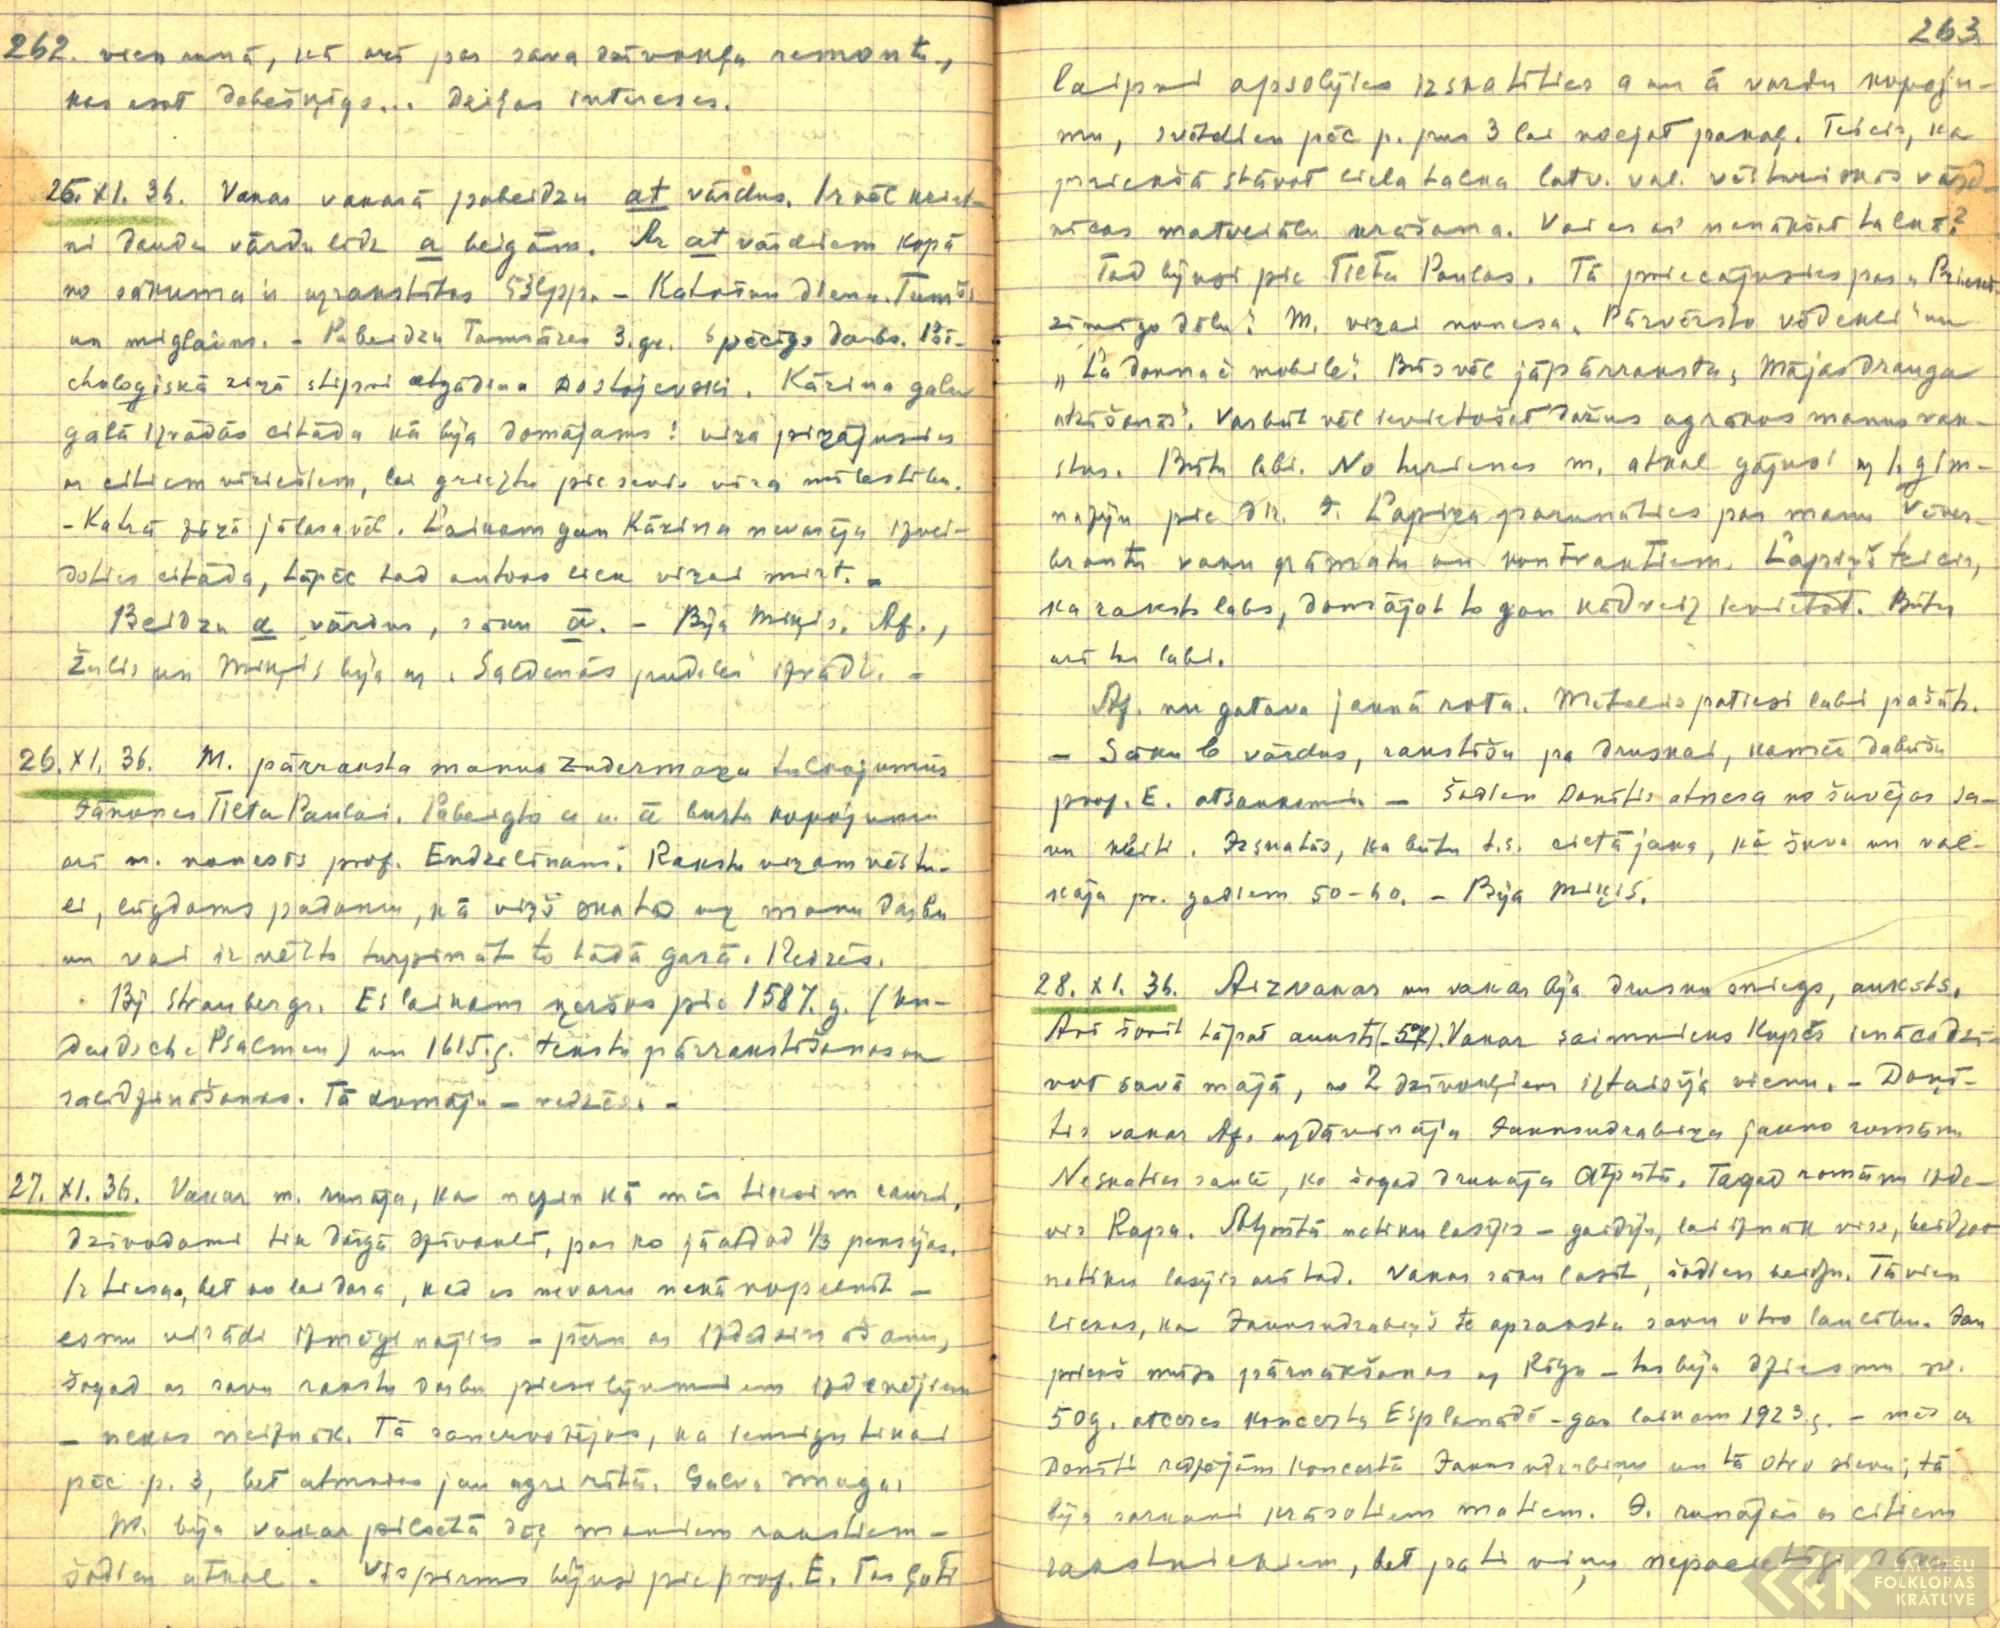 262. vienumā, kā arī par sava dzīvokļa remontu,
kas esot Dabešķīgs... Daiļas intereses.
25. XI. 36. Vakar vakarā pabeidzu at vārdus. Ir vēl kriet-
ni daudz vārdu līdz a beigām. Ar at vārdiem kopā
no sākuma ir uzrakstītas lpp. – Katrīnu diena. Tumšs
un miglains. – Pabeidzu Tamsāres 3. gr. Spēcīgs darbs. Psi-
choloģiskā ziņā stipri atgādina Dostojevski. Kārina galu
galā izrādās citāda kā bija domājams: viņa pinājusies
ar citiem vīriešiem, lai grieztu pie sevis vīra mīlestību.
– Katrā ziņā jālasa vēl. Laikam gan Kārina nevarēja izvei-
doties citāda, tāpēc tad autors liek viņai mirt. –
Beidzu a vārdus, sāku ā. – Bija Miķis. Af.,
Žulis un Miķis bija uz „Saldenās pudeles" izrādi. –
26. XI. 36. M. pārraksta manus Zudermaņa tulkojumus
Jānones Tilta Paulai. Pabeigto a un ā burtu kopojumu
arī m. nonesīs prof. Endzelīnam. Rakstu viņam vēstu-
li, lūgdams padomu, kā viņš skatās uz manu darbu
un vai ir vērts turpināt to tādā garā. Redzēs.
Bij Straubergs. Es laikam ķeršos pie 1587. g. (Un-
deudsche Psalmen) un 1615. g. tekstu pārrakstīšanas un
salīdzināšanas. Tā domāju – redzēs. –
27. XI. 36. Vakar m. runāja, ka nezin kā mēs tiksim cauri,
dzīvodami tik dārgā dzīvoklī, par ko jāatdod 1/3 pensijas.
Ir tiesa, bet ko lai dara, kad es nevaru nekā nopelnīt –
esmu visādi izmēģinājies – pērn ar izdevēju
šogad ar savu rakstu darbu piesolījumiem izdevējiem
– nekas neiznāk. Tā sanervozējos, ka iemigu tikai
pēc p. 3, bet atmodos jau agri rītā. Galva smaga.
M. bija vakar pilsētā dēļ maniem rakstiem –
šodien atkal. Vispirms bijusi pie prof. E. Tas ļoti
263
laipni apsolījies izskatīties a un ā vārdu kopoju-
mu, svētdien pēc p. pus 3 lai noejot pakaļ. Teicis, ka
priekšā stāvot liela talka latv. val. vēsturiskās vārd-
nīcas materiālu krāšana. Vai es arī nenākšot talkā?
Tad bijusi pie Tilta Paulas. Tā priecājusies par „Priecī-
zīmīgo dēlu". M. viņai nonesa „Pārvērsto vēdekli" un
„La donna è mobile". Būs vēl jāpārraksta „Mājas drauga
atzīšanās". Varbūt vēl ievietošot dažus agrākos manus rak-
stus. Būtu labi. No turienes m. atkal gājusi uz 1. ģim-
nāziju pie dir. J. Lapiņa parunāties par manu Vēver-
brantu vaku grāmatu un kontraktiem. Lapiņš teicis,
ka raksts labs, domājot to gan kādreiz ievietot. Būtu
arī tas labi.
Af. nu gatava jaunā rota. Mētelis patiesi labi pašūts.
– Sāku b vārdus, rakstīšu pa druskai, kamēr dabūšu
prof. E. atsauksmi. – Šodien Donītis atnesa no šuvējas sa-
vu . Izskatās, ka būtu t.s. cietā jaka, kā šuva un val-
kāja pr. gadiem 50–60. – Bija Miķis.
28. XI. 36. Aizvakar un vakar bija drusku sniegs, auksts.
Arī šorīt tāpat auksts (–5°R). Vakar saimnieks Kupčs ienāca dzī-
vot savā mājā, no 2 dzīvokļiem iztaisīja vienu. – Donī-
tis vakar Af. uzdāvināja Jaunsudrabiņa jauno romānu
Neskaties saulē, ko šogad drukāja Atpūtā. Tagad romānu izde-
vis Rapa. Atpūtā netiku lasījis – gaidīju, lai iznāk viss, beidzot
netiku lasījis arī tad. Vakar sāku lasīt, šodien beidzu. Tā vien
liekas, ka Jaunsudrabiņš te apraksta savu otro laulību. Jau
priekš mūsu pārnākšanas uz Rīgu – tas bija dziesmu sv.
50 g. atceres koncertu Esplanādē – gan laikam 1923. g. – mēs ar
Donīti redzējām koncertā Jaunsudrabiņu un tā otro sievu; tā
bija sarkani krāsotiem matiem. J. runājās ar citiem
rakstniekiem, bet pati viņu
LATVIEŠU
FOLKLORAS
KRĀTUVE